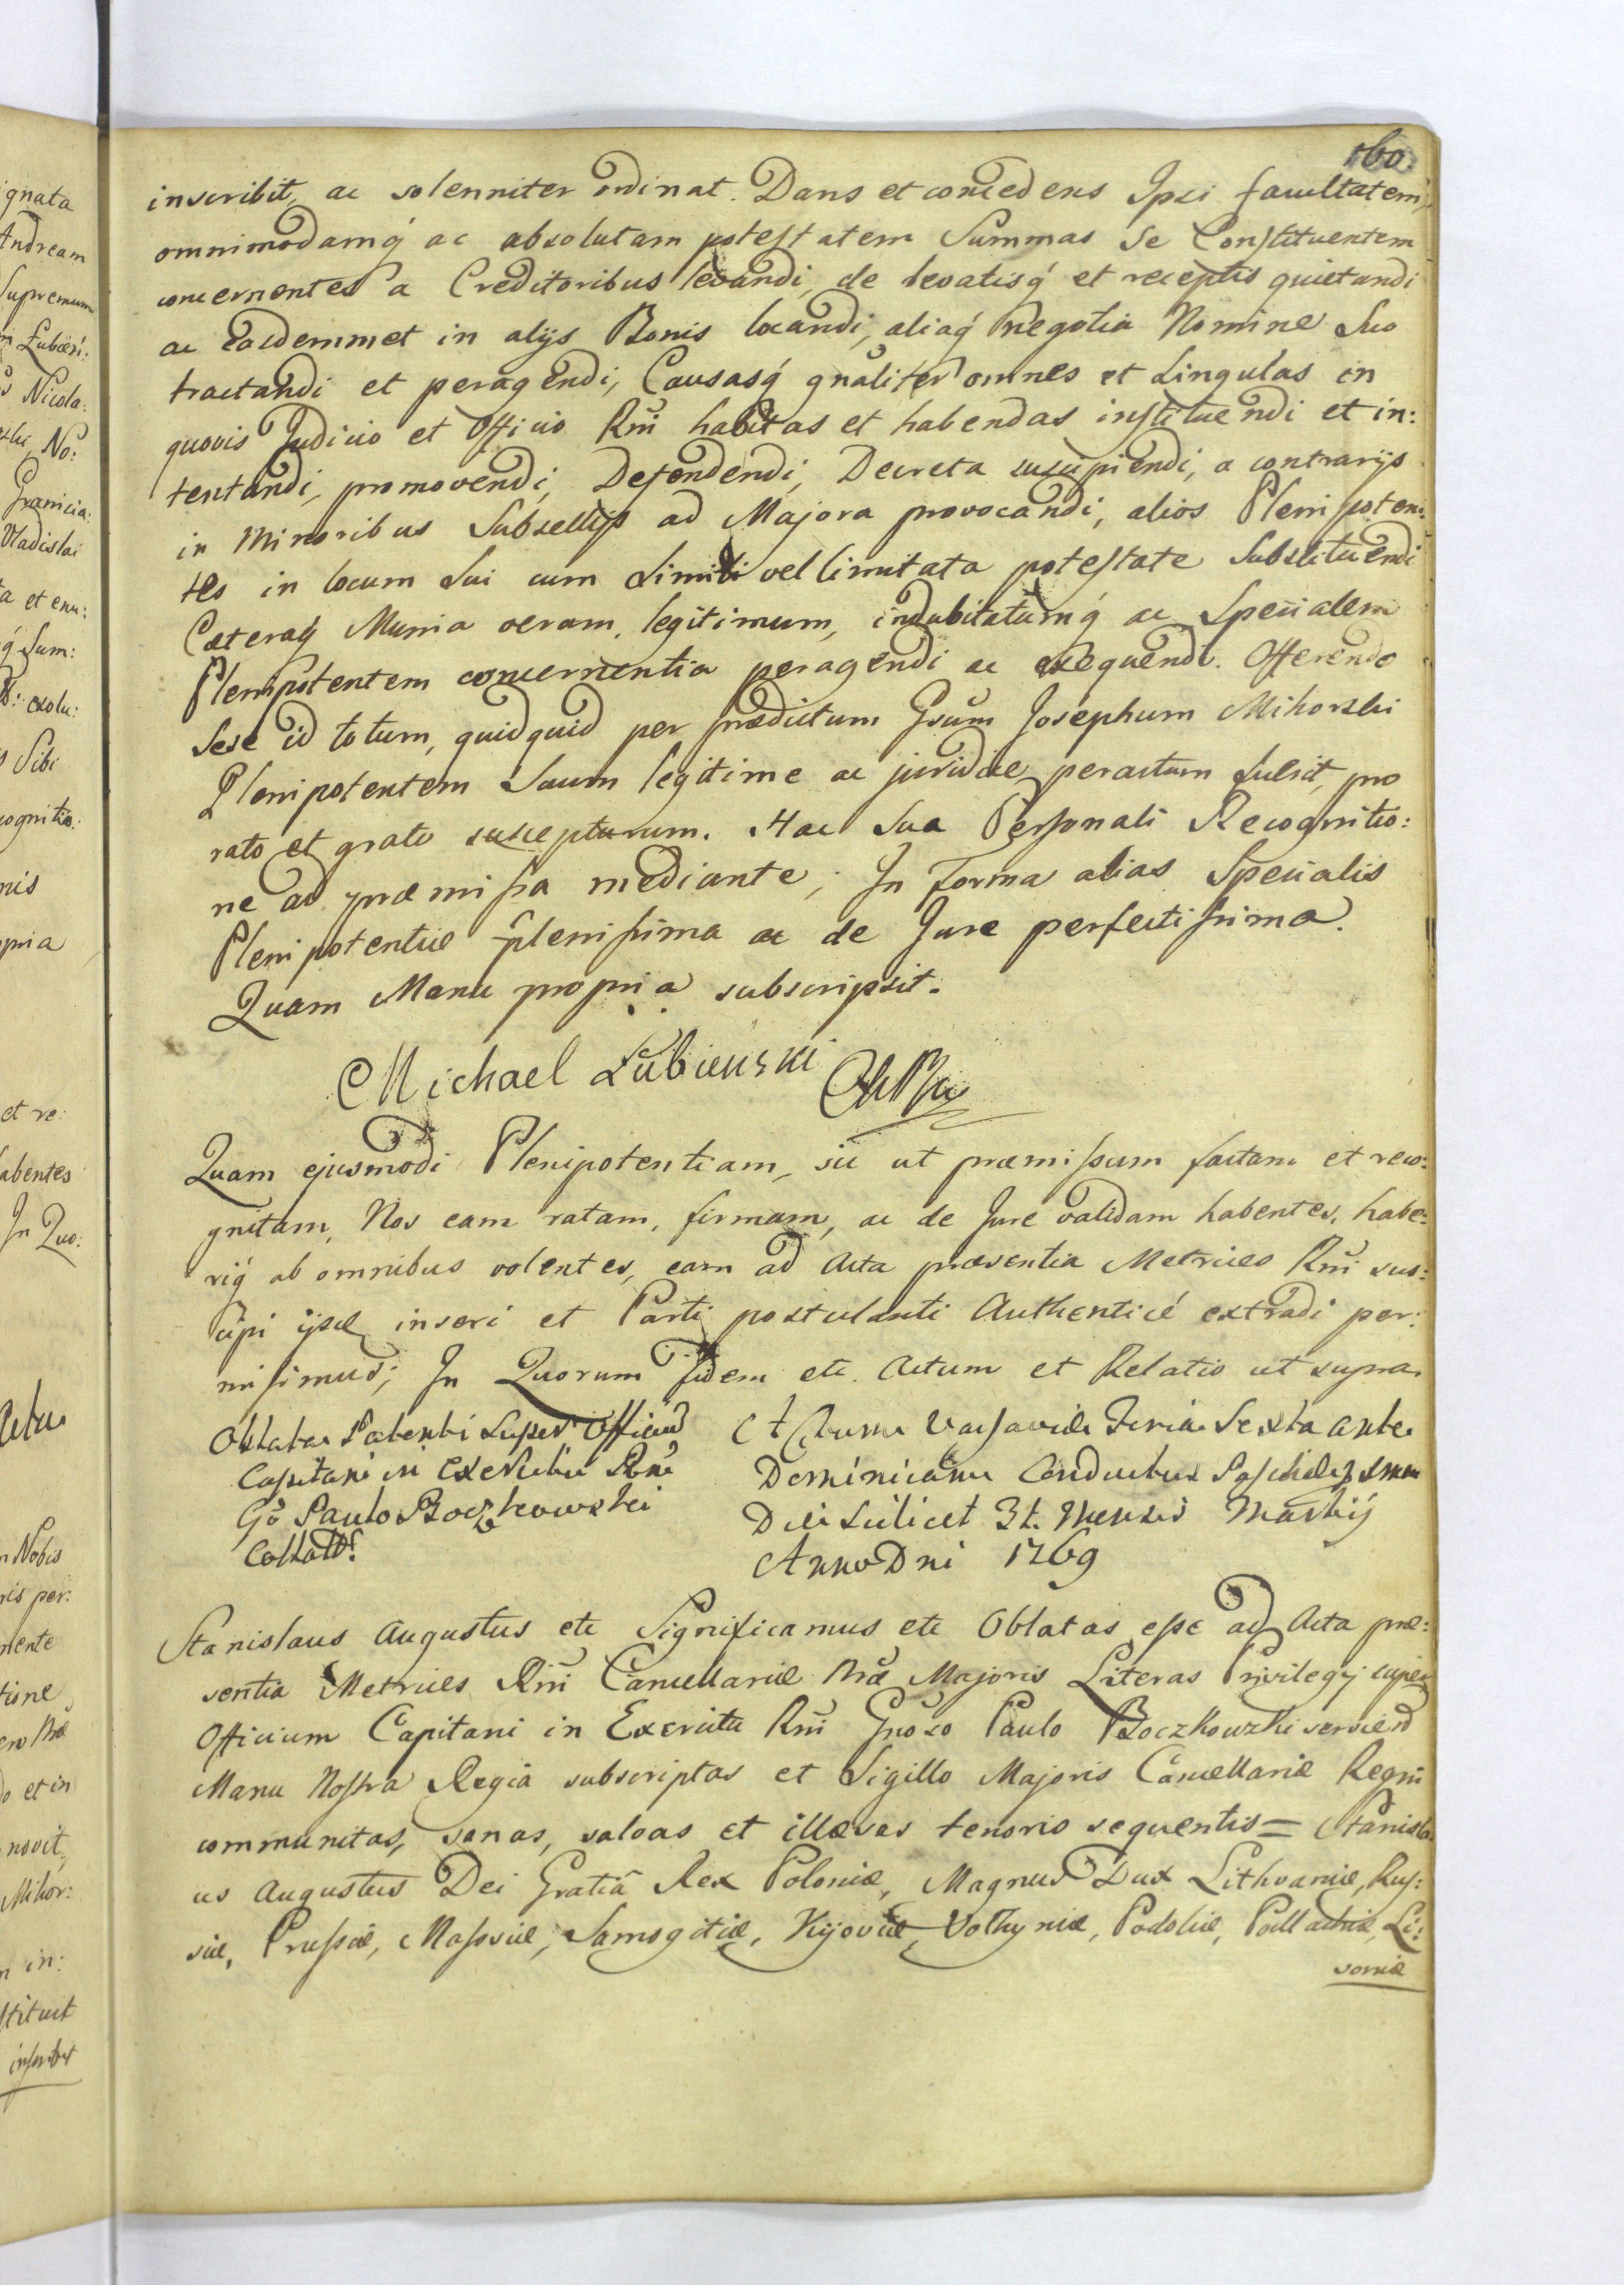 160.
inscribit, ac solenniter ordinat. Dans et concedens Ipsi facultatem,
omnimodamq́ ac absolutam potestatem Summas Se Constituentem
concernentes a Creditoribus levandi, de levatisq́ et receptis quietandi
ac Easdemmet in alijs Bonis locandi, aliaq́ Negotia Nomine Suo
tractandi et peragendi, Causasq́ gnãliter omnes et Singulas in
quovis Judicio et Officio Rnĩ habitas et habendas instituendi et in:
tentandi, promovendi, Defendendi, Decreta suscipiendi, a contrarijs
in Minoribus Subsellijs ad Majora provocandi, alios Plenipoten:
tes in locum Sui cum Simili vel limitata potestate Substituendi
Cæteraq́ Munia verum, legitimum, indubitatumq́ ac Specialem
Plenipotentem concernentia peragendi ac exequendi. Offerendo
Sese id totum, quidquid per prædictum Gsũm Josephum Mikorski
Plenipotentem Suum legitime ac juridice peractum fuerit, pro
rato et grato suscepturum. Hac Sua Personali Recognitio:
ne ad præmissa mediante; In Forma alias Specialis
Plenipotentiæ plenissima ac de Jure perfectissima.
Quam Manu propria subscripsit.
Michael Łubienski
Quam ejusmodi Plenipotentiam, sic ut præmissum factam et reco:
gnitam, Nos eam ratam, firmam, ac de Jure validam habentes, habe:
riq́ ab omnibus volentes, eam ad Acta præsentia Metrices Rnĩ sus:
cipi ijsq́ inseri et Parti postulanti Authenticé extradi per:
misimus; In Quorum fidem etc. Actum et Relatio ut supra.
Oblata Patenti Super Officiũ
Capitani in Exercitu Rni
Gõ Paulo Boczkowski
Collati.
Actum Varsaviæ Feria Sexta ante
Dominicam Conductus Paschalis
Die Scilicet 31. Mensis Martij
Anno Dni 1769
Stanislaus Augustus etc Significamus etc Oblatas esse ad Acta præ:
sentia Metrices Rnĩ Cancellariæ Nræ Majoris Literas Privilegij super
Officium Capitani in Exercitu Rnĩ Gnõso Paulo Boczkowski serviend
Manu Nostra Regia subscriptas et Sigillo Majoris Cancellariæ Regni
communitas, sanas, salvas et illæsas tenoris sequentis = Stanisla
us Augustus Dei Gratiâ Rex Poloniæ, Magnus Dux Lithvaniæ, Rus:
siæ, Prussiæ, Masoviæ, Samogitiæ, Kijoviæ, Volhyniæ, Podoliæ, Podlachiæ, Li:
voniæ